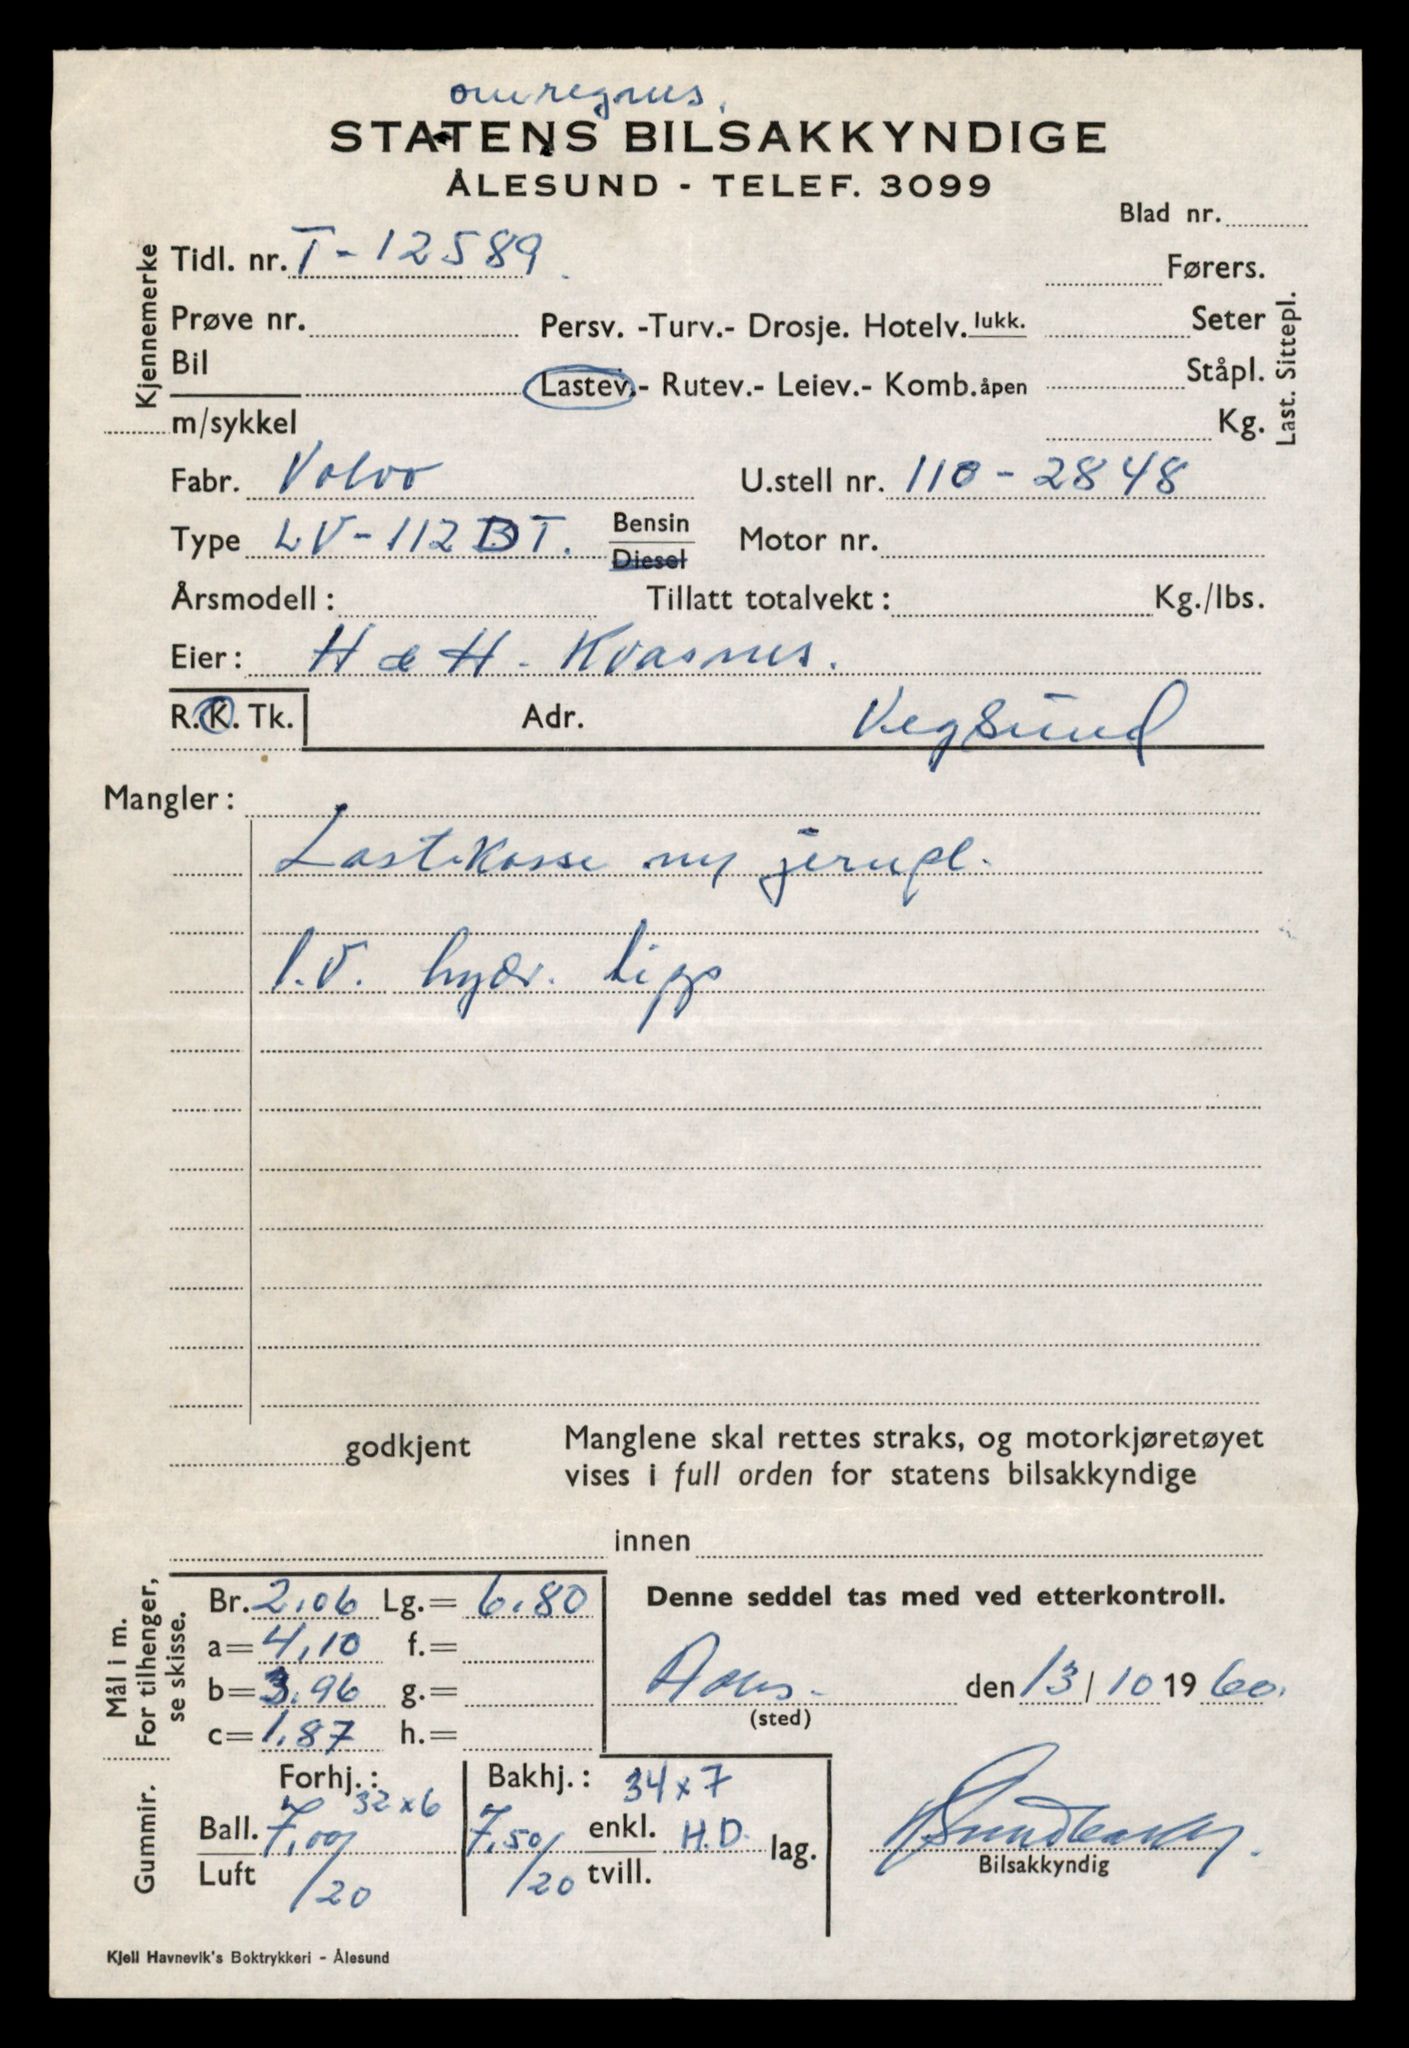 omregnes.
STATENS BILSAKKYNDIGE
ÅLESUND - TELEF. 3099
Blad nr.
Kjennemerke
Tidl. nr. T-12589.
Førers.
Prøve nr.
Persv. -Turv.- Drosje. Hotelv. lukk.
Seter
Bil
Lastev.- Rutev.- Leiev.- Komb. åpen
Ståpl.
m/sykkel
Kg.
Last. Sittepl.
Fabr. Volvo
U.stell nr. 110-2848
Type LV-112 DT.
Bensin
Diesel
Motor nr.
Årsmodell:
Tillatt totalvekt: Kg./lbs.
Eier: H & H. Kvasnes.
R. K. Tk.
Adr. Vegsund
Mangler:
Lastekasse ny jernpl.
1.V. hydr. tipp
godkjent
Manglene skal rettes straks, og motorkjøretøyet
vises i full orden for statens bilsakkyndige
innen
Mål i m.
For tilhenger,
se skisse.
Br. 2.06 Lg.= 6.80
a= 4,10 f.=
b= 3.96 g.=
c= 1.87 h.=
Denne seddel tas med ved etterkontroll.
den 13/10 1960.
(sted)
Gummir.
Forhj.: 32x6
Ball. 7,00/
Luft /20
Bakhj.: 34x7
7,50/ enkl. H.D. lag.
/20 tvill.
Bilsakkyndig
Kjell Havnevik's Boktrykkeri - Ålesund